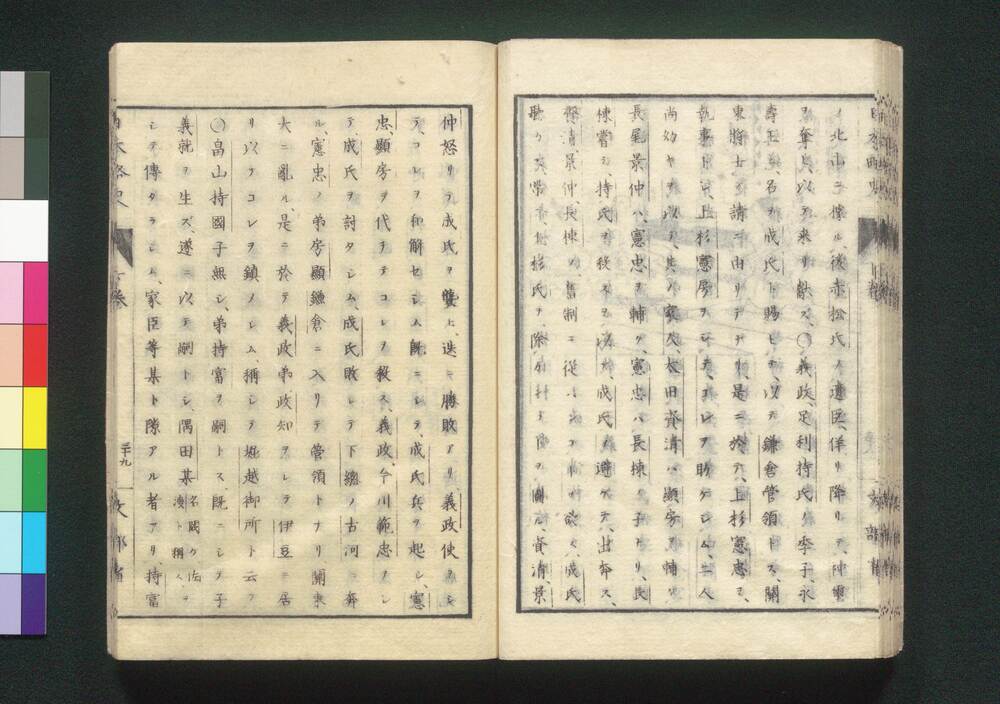 ノ北山ニ據ル、後赤松氏ノ遺臣、佯リ降リテ、神璽
ヲ奪ヒ、以テ来リ獻ズ、〇義政、足利持氏ノ季子、永
壽王ニ、名ヲ成氏ト賜ヒテ、以テ鎌倉管領トス、關
東將士ノ請ニ由リテナリ、是ニ於テ、上杉憲忠ヲ、
執事トシ、上杉顯房ヲシテ、コレヲ助ケシム、二人
尚幼ヤキヲ以テ、其ノ家宰、太田資清ハ、顯房ヲ輔ケ、
長尾景仲ハ、憲忠ヲ輔ク、憲忠ハ、長棟ノ子ナリ、
棟嘗テ、持氏ヲ殺スヲ以テ、成氏ヲ避ケテ、出奔ス、
資清、景仲、長棟ノ舊制ニ從ハ
聽カズ、常ニ上杉氏ヲ、除カント
資清、景
仲怒リテ、成氏ヲ襲ヒ、迭ニ勝敗アリ、義政使ヲシ
テ、コレヲ和解セシム、既ニシテ、成氏兵ヲ起シ、憲
忠、顯房ヲ伐チテ、コレヲ殺ス、義政、今川範忠ヲシ
テ、成氏ヲ討タシム、成氏敗レテ、下總ノ古河ニ奔
ル、憲忠ノ弟房顯、鎌倉ニ入リテ、管領トナリ、關東
大ニ亂ル、是ニ於テ、義政弟政知ヲシテ、伊豆ニ居
リ、以テコレヲ鎮メシム、稱シテ堀越御所ト云フ、
〇畠山持國子無シ、弟持富ヲ嗣トス、既ニシテ子
義就ヲ生ズ、遂ニ以テ嗣トシ、隅田某名闕ク、佐渡ト稱ス、ヲ
シテ、傳タラシム、家臣等、某ト隙アル者アリ、持富
三十九